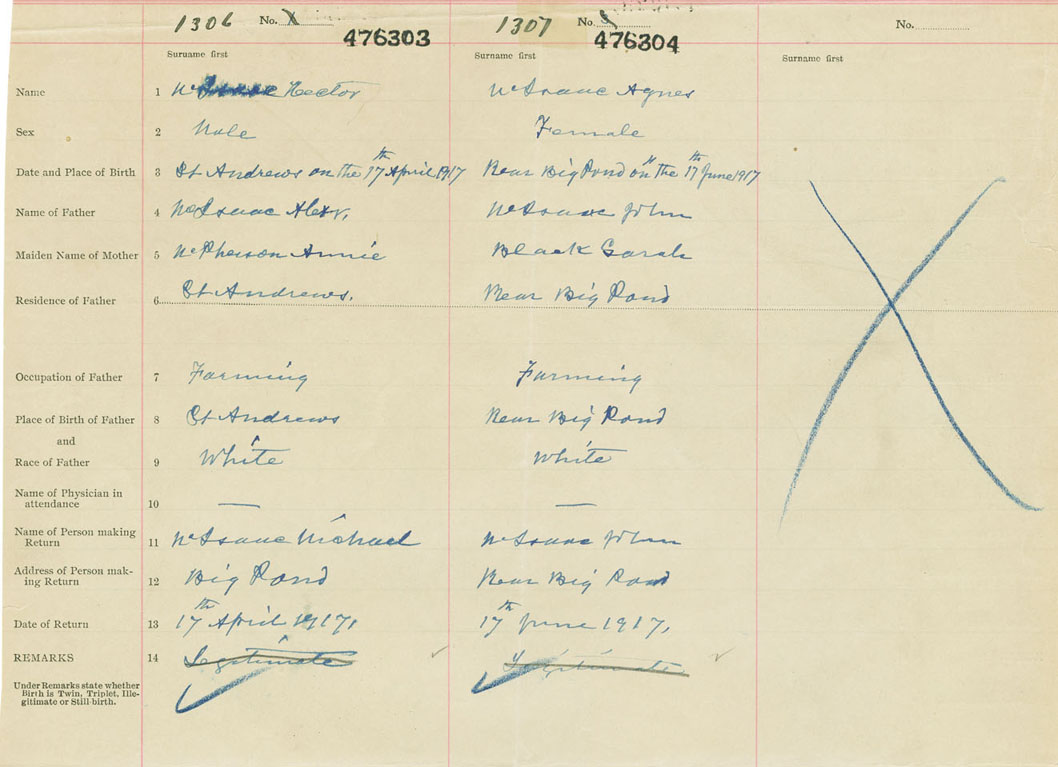 1306 No. X 476303
1307 No. 476304
No.
Surname first
Surname first
Surname first
Name 1 McIsaac Hector McIsaac Agnes
Sex 2 Male Female
Date and Place of Birth 3 St Andrews on the 17th April 1917 Rear Big Pond on the 17th June 1917
Name of Father 4 McIsaac Alexr. McIsaac John
Maiden Name of Mother 5 McPherson Annie Black Sarah
Residence of Father 6 St Andrews. Rear Big Pond
Occupation of Father 7 Farming Farming
Place of Birth of Father 8 St Andrews Rear Big Pond
and
Race of Father 9 White White
Name of Physician in
attendance 10 — —
Name of Person making
Return 11 McIsaac Michael McIsaac John
Address of Person mak-
ing Return 12 Big Pond Rear Big Pond
Date of Return 13 17th April 1917, 17th June 1917,
REMARKS 14 Legitimate Legitimate
Under Remarks state whether
Birth is Twin, Triplet, Ille-
gitimate or Still-birth.